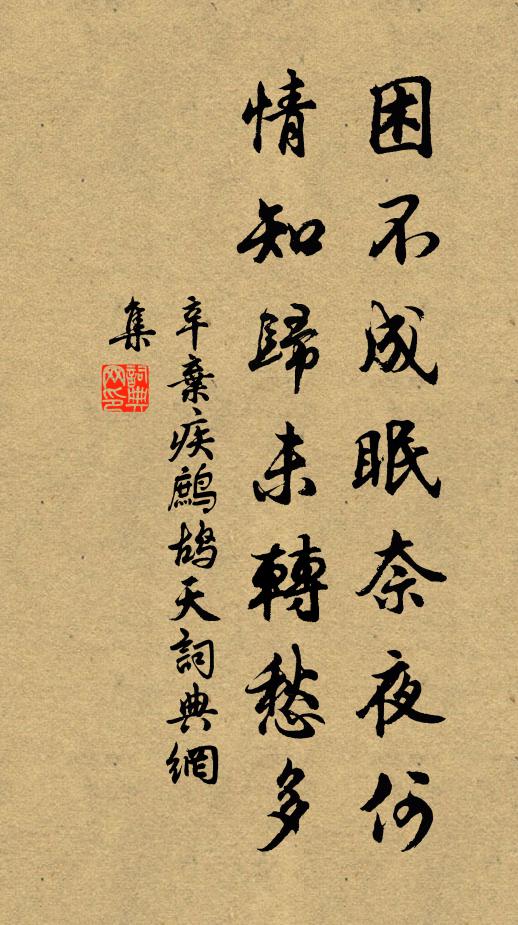 困不成眠奈夜何
情知歸未轉愁多
辛棄疾鷓鴣天詞典網
集
詞典網印